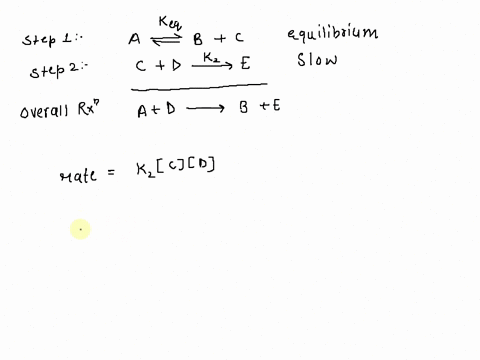 Step 1:- A ⇌ B + C Keq equilibrium
Step 2:- C + D ⟶ E K₂ Slow
Overall Rxⁿ A + D ⟶ B + E
rate = K₂[C][D]